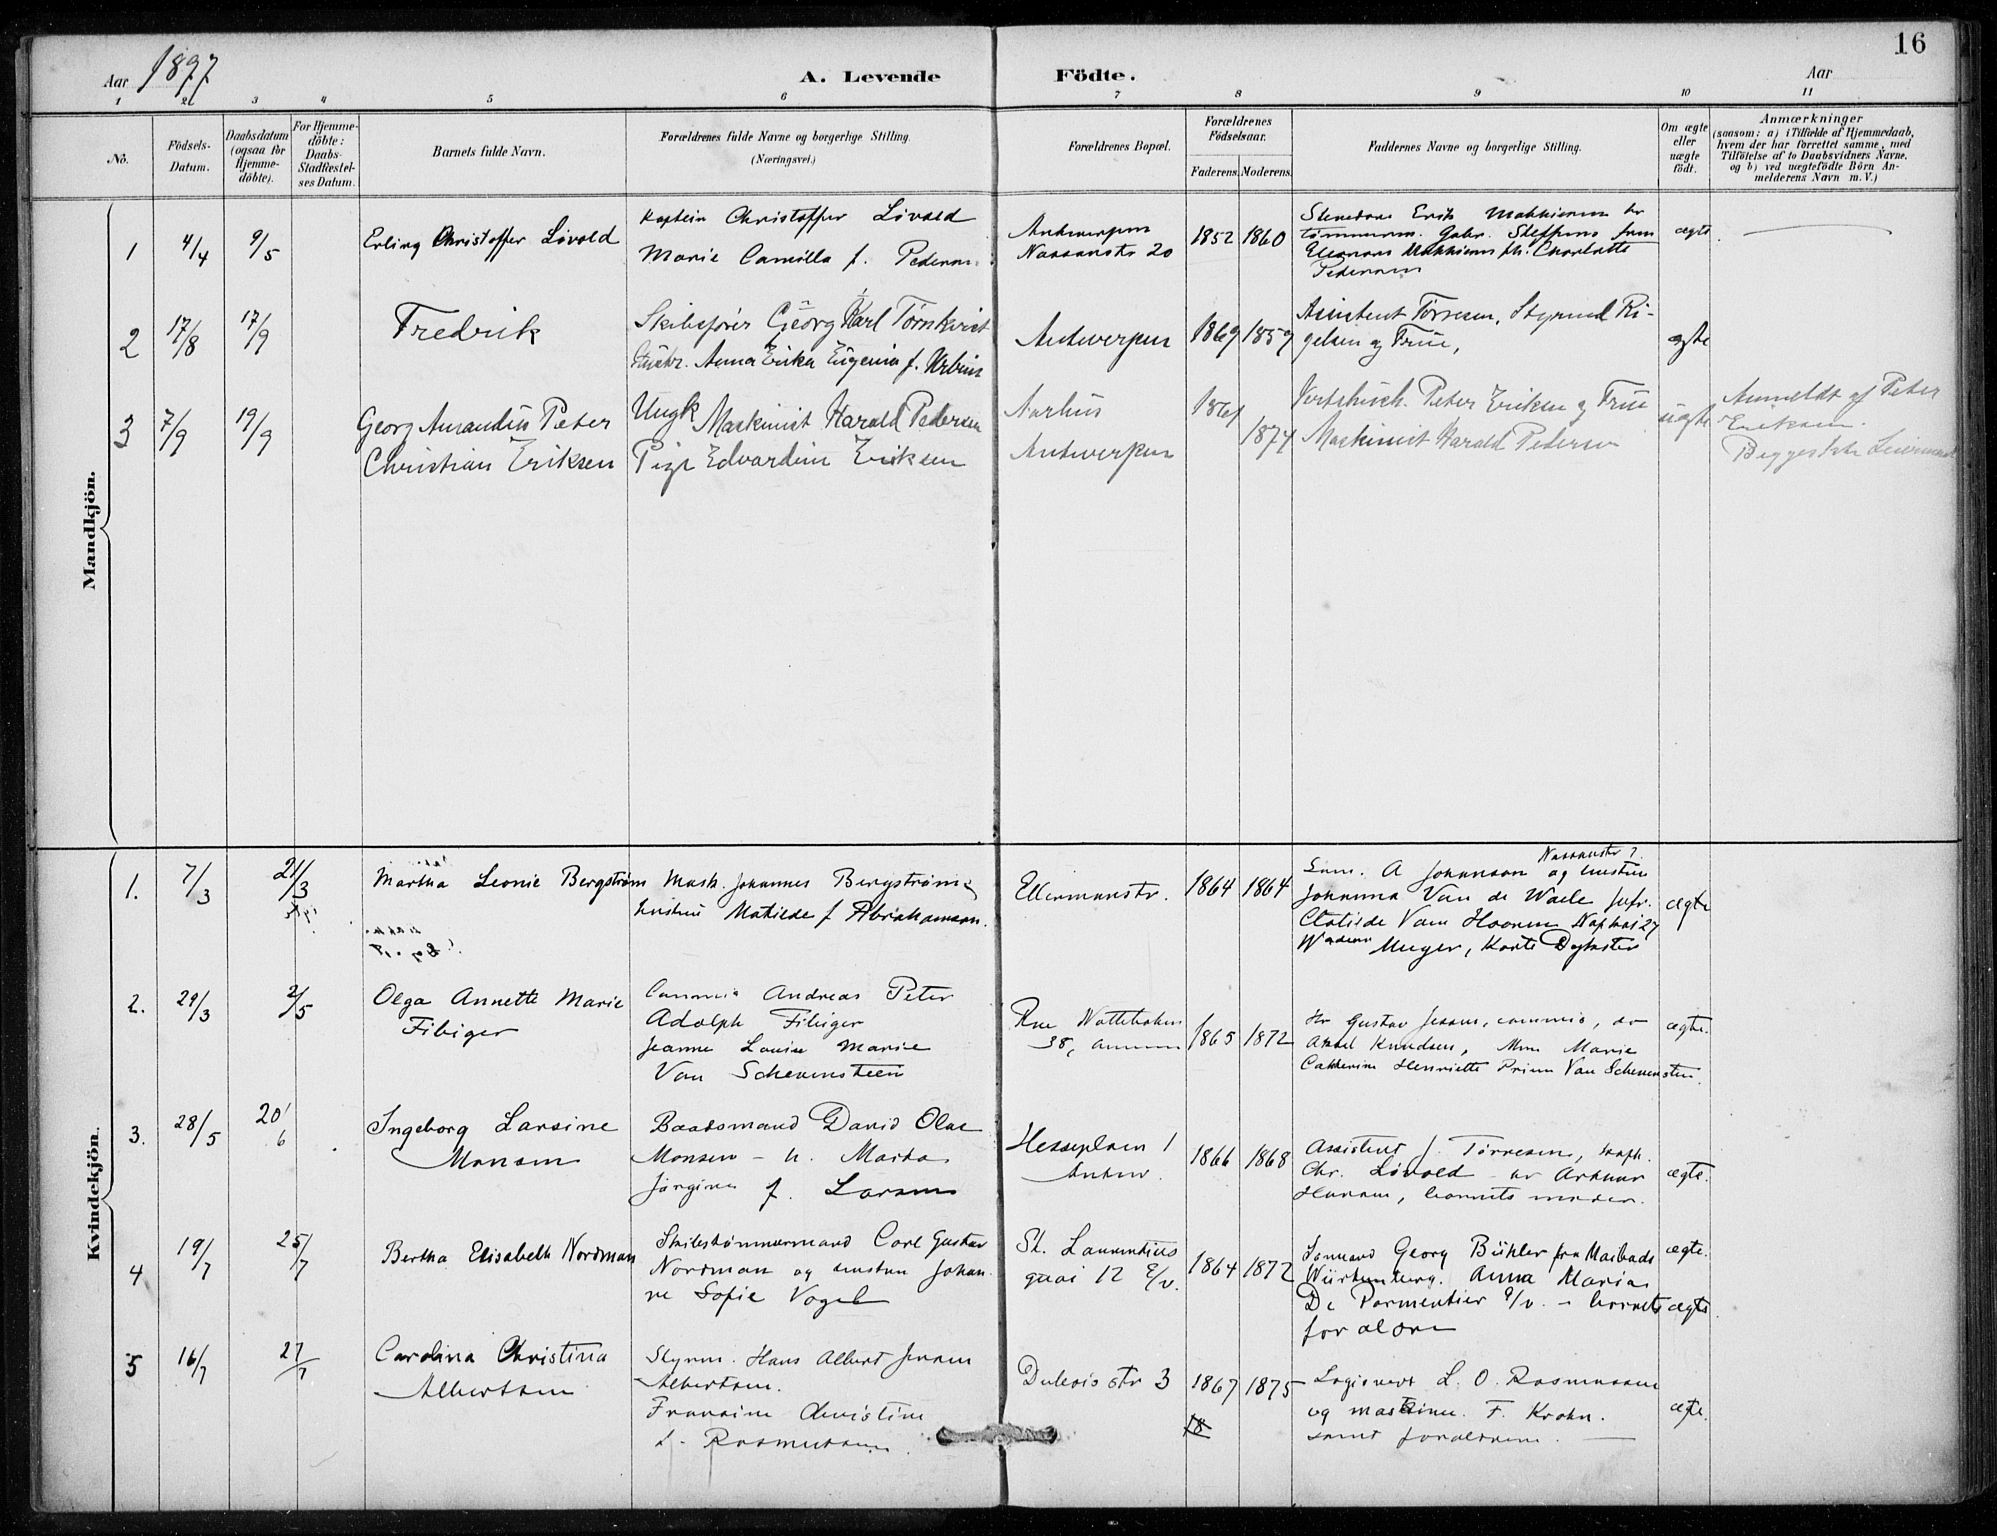 16
Aar 1897
A. Levende Födte.
Aar
1 2 3 4 5 6 7 8 9 10 11
No.
Födsels-
Datum.
Daabsdatum
(ogsaa for
Hjemme-
döbte).
For Hjemme-
döbte:
Daabs-
Stadfæstel-
ses Datum.
Barnets fulde Navn.
Forældrenes fulde Navne og borgerlige Stilling.
(Næringsvei.)
Forældrenes Bopæl.
Forældrenes
Födselsaar.
Faderens. Moderens.
Faddernes Navne og borgerlige Stilling.
Om ægte
eller
uægte
födt.
Anmærkninger
(saasom: a) i Tilfælde af Hjemmedaab,
hvem der har forrettet samme, med
Tilföielse af to Daabsvidners Navne,
og b) ved uægtefödte Börn An-
melderens Navn m. V.)
Mandkjön.
1 4/4 9/5
Erling Christoffer Lövold
Kaptein Christoffer Lövold
Marie Camilla f. Pedersen
Antwerpen
Nassaustr 20
1852 1860
Erik
Gabr. Steffens
Charlotte
Pedersen
ægte
2 17/8 17/9
Fredrik
Skibsfører Georg Karl Törnkvist
Hustr. Anna Erika Eugenia f. Urbin
Antwerpen
1869 1859
Assistent Törresen, Styrmd Ri-
gelsen og Frue,
ægte
3 7/9 19/9
Georg Amandus Peter
Christian Eriksen
Ungk Maskinist Harald Pedersen
Pige Edvardine Eriksen
Aarhus
Antwerpen
1874
Peter Eriksen og Frue
Maskinist Harald Pedersen
uægte
Anmeldt af Peter
Eriksen.
Begges 1ste
Kvindekjön.
1. 7/3 21/3
Martha Leonie Bergström
Mask. Johannes Bergström &
hustru Matilde f Abrahamsen.
Ellermanstr.
1864 1864
Nassaustr 7
A Johanson og hustru
Johanna Van de Waele jufr.
Clotilde Van Hooren Napkai 27
Meyer, Korte
ægte
2. 29/3 2/5
Olga Annette Marie
Fibiger
Commis Andreas Peter
Adolph Fibiger
Jeanne Louise Marie
Van Schevensteen
Rue
38,
1865 1872
Hr Gustav Jessen, commis, do
Aksel Knudsen, Mme Marie
Catherine Henriette Van Schevensteen.
ægte.
3. 28/5 20/6
Ingeborg Larsine
Monsen
Baadsmand David Olae
Monsen – h. Marta
Jörgine f. Larsen
Hesseplein 1
Antw.
1866 1868
Assistent J. Törresen, kapt.
Chr. Lövold – hr Arthur
Hansen, barnets moder.
ægte.
4 19/7 25/7
Bertha Elisabeth Nordman
Skibstömmermand Carl Gustav
Nordman og hustru Johan
ne Sofie Vogel
St. Laurentius
quai 12 E/v.
1864 1872
Sömand Georg Bühler fra Marbads
Würtemberg. Anna Maria
De Parmentier E/v. – barnets
forældre
ægte.
ægte
5 16/7 27/7
Carolina Christina
Albertsen
Styrm. Hans Albert Jensen
Albertsen.
Fransine Christine
f. Rasmussen.
Duboisstr 3
1867 1875
18
Logisvert L. O. Rasmussen
og maskinm. F. Krohn.
samt forældrene.
ægte.